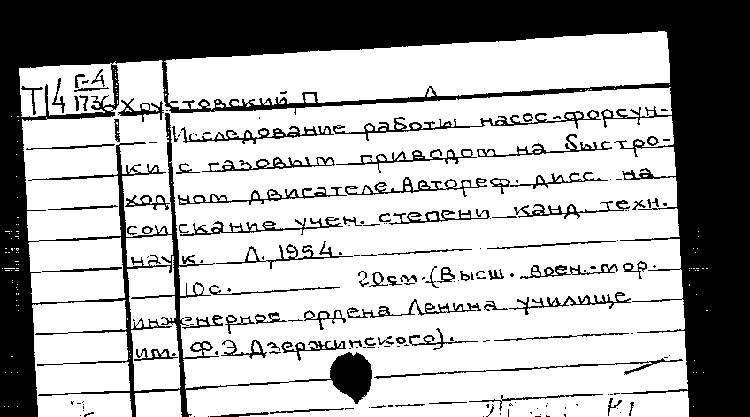 Г-4
Т14 1736 Хрустовский, П. А.
Исследование работы насос-форсун-
ки с газовым приводом на быстро-
ходном двигателе. Автореф. дисс. на
соискание учен. степени канд. техн.
наук. Л., 1954.
10 с. 20см. (Высш. воен.-мор.
инженерное ордена Ленина училище
им. Ф.Э.Дзержинского).